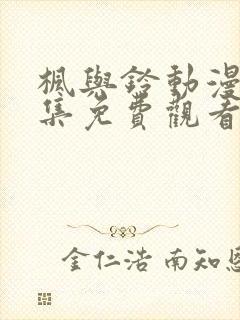 楓與鈴動漫
集免費觀看
金仁浩 南知恩